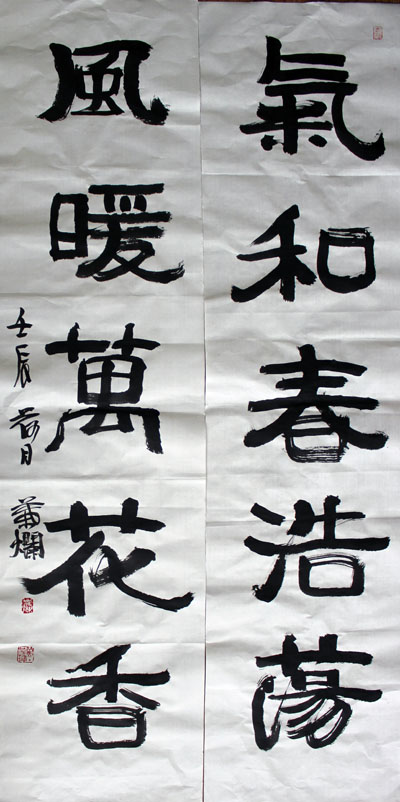 氣和春浩蕩
風暖萬花香
壬辰 春月